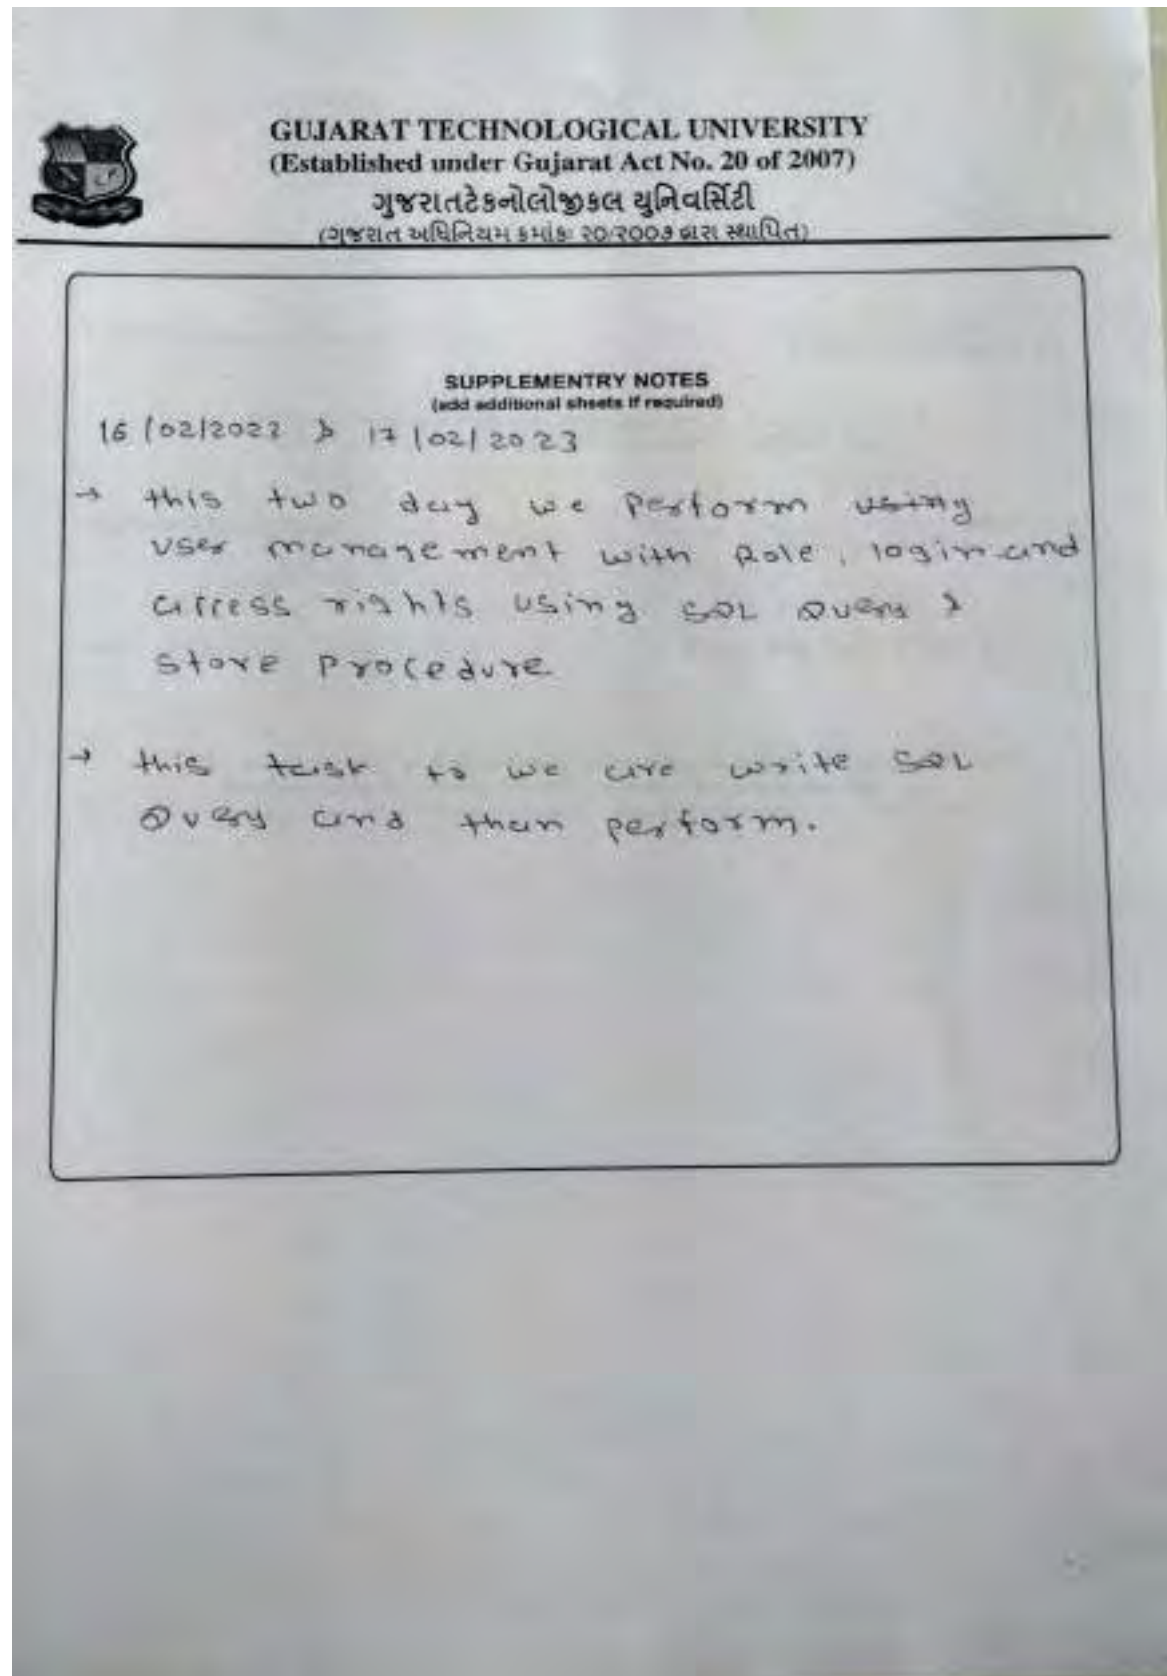 GUJARAT TECHNOLOGICAL UNIVERSITY
(Established under Gujarat Act No. 20 of 2007)
ગુજરાતટેકનોલોજીકલ યુનિવર્સિટી
(ગુજરાત અધિનિયમ ક્રમાંકઃ ૨૦/૨૦૦૭ દ્વારા સ્થાપિત)
SUPPLEMENTRY NOTES
(add additional sheets if required)
16/02/2022 & 17/02/2023
→ this two day we perform using
user management with Role, login and
access rights using SQL Query &
store procedure
→ this task to we are write SQL
Query and than perform.